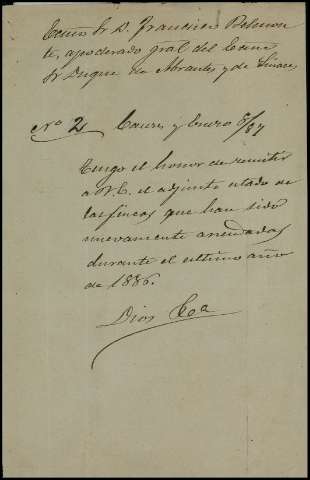 Excmo Sr D. Francisco Belmon
te, apoderado gral del Excmo
Sr Duque de Abrantes y de Linares
No 2 Caures y Enero 8/87
Tengo el honor de remitir
a V.E. el adjunto estado de
las fincas que han sido
nuevamente arrendadas
durante el ultimo año
de 1886.
Dios